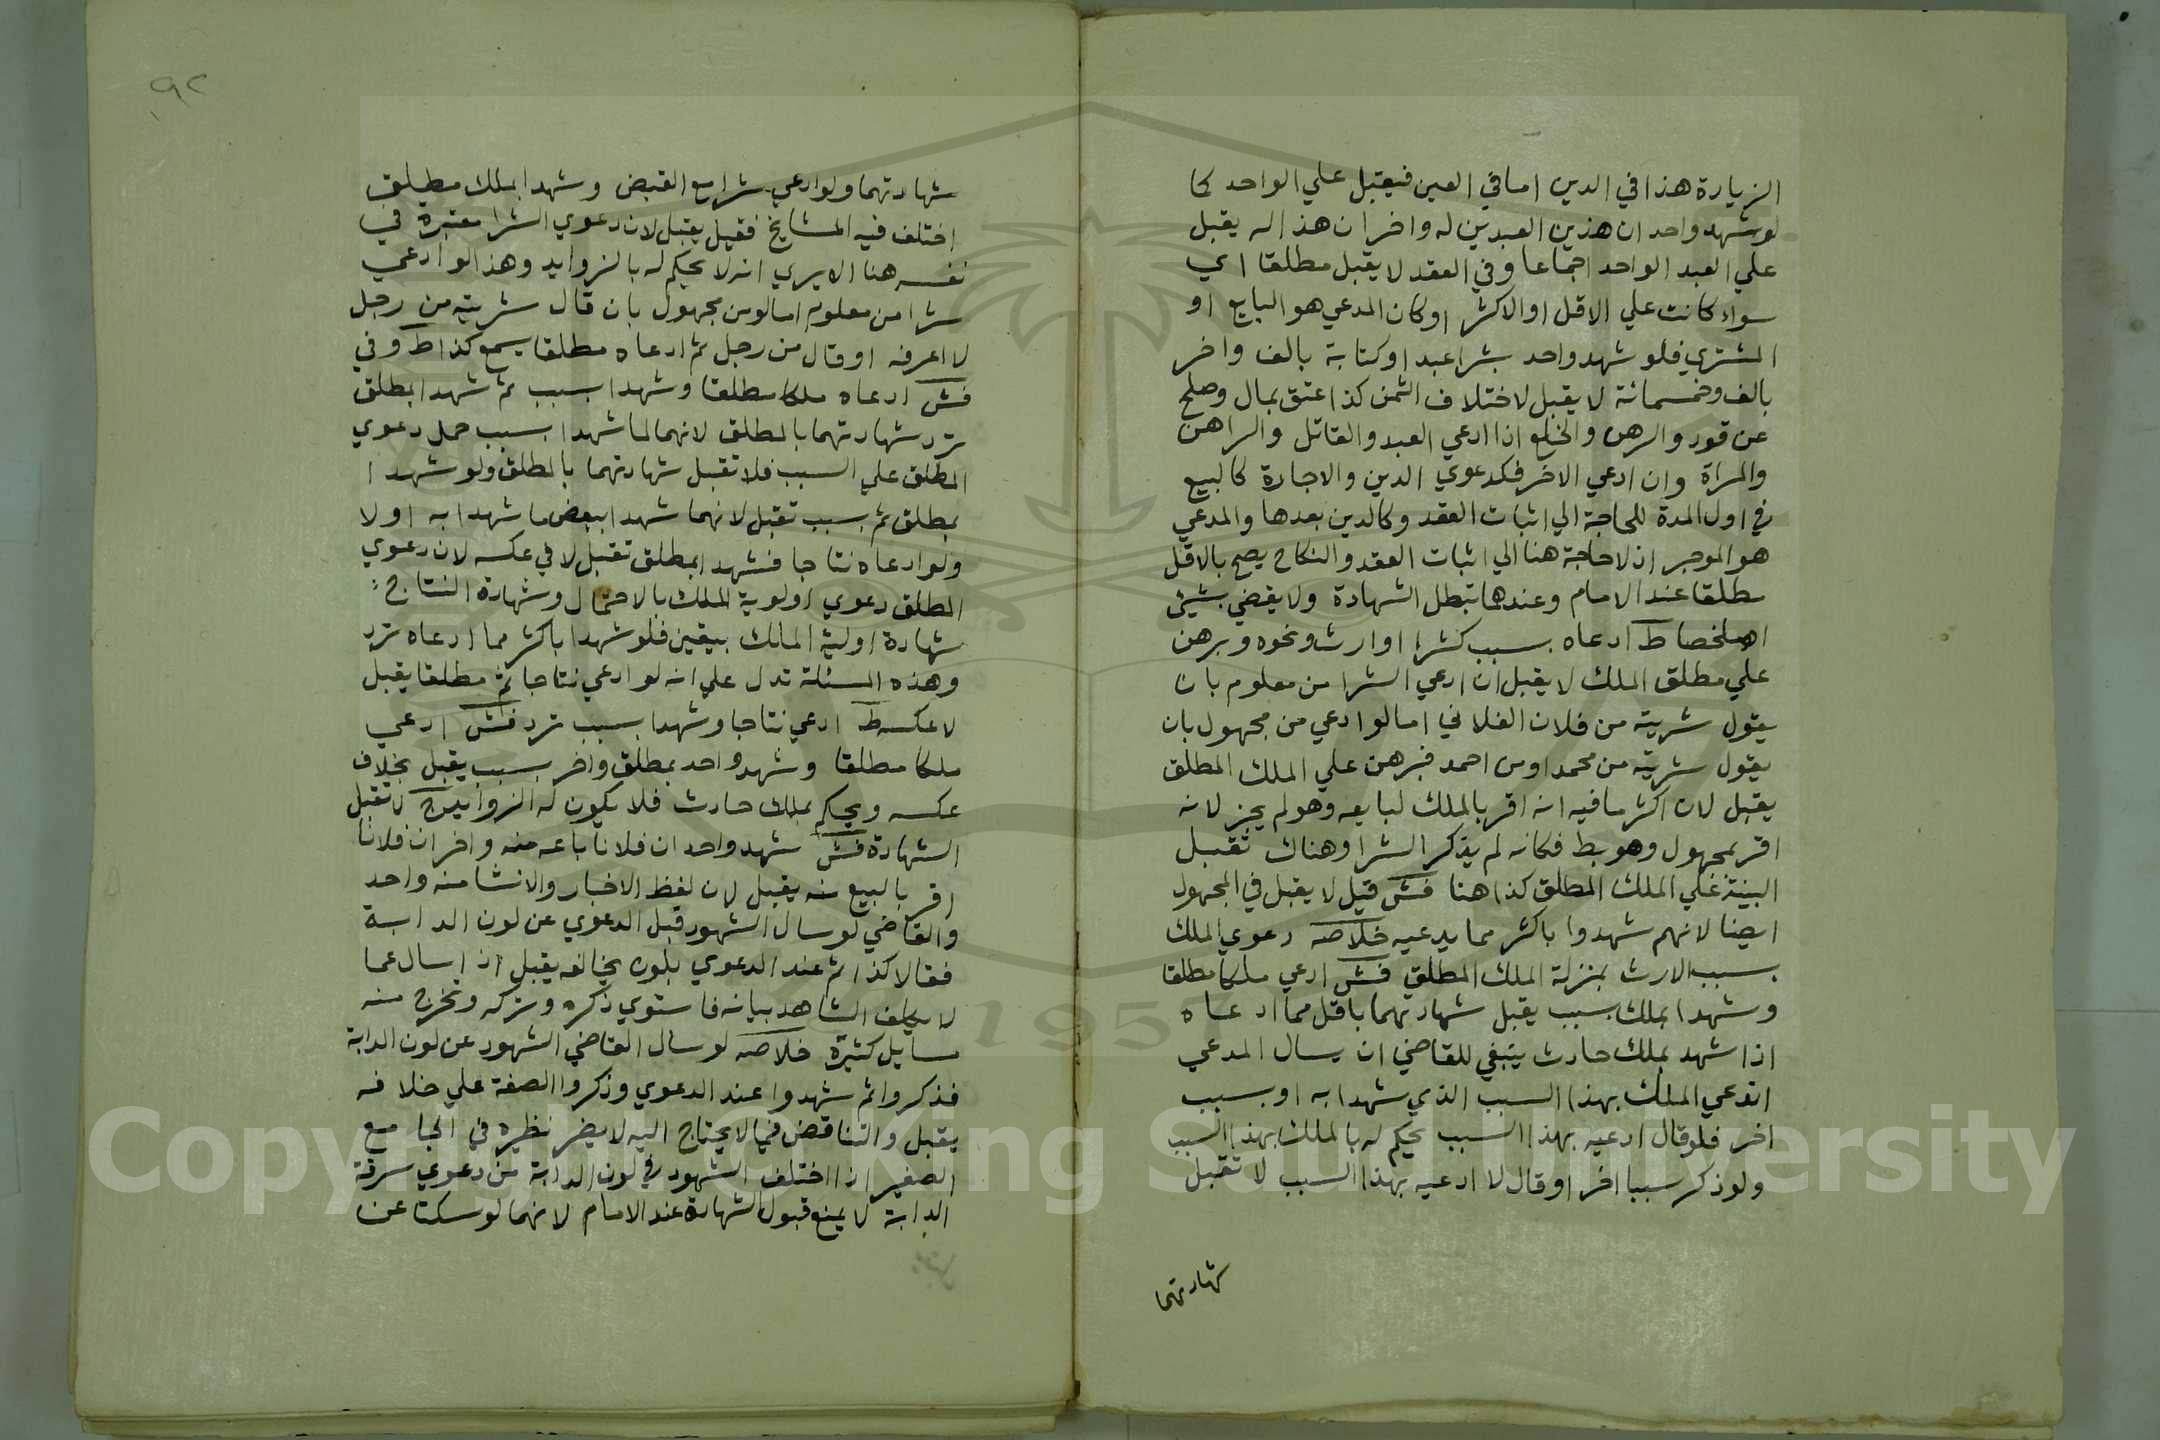 الزيادة هذا في الدين اما في العين فيقبل علي الواحد كما
لو شهد واحد ان هذين العبدين له واخر ان هذا له يقبل
علي العبد الواحد اجماعا وفي العقد لا يقبل مطلقا اي
سواء كانت علي الاقل او الاكثر او كان المدعي هو البايع او
المشتري فلو شهد واحد بشرا عبد او كتابة بالف واخر
بالف وخمسمائة لا يقبل لاختلاف الثمن كذا عتق بمال وصلح
عن قود والرهن والخلع اذا ادعي العبد والقاتل والراهن
والمراة وان ادعي الاخر فكدعوي الدين والاجارة كالبيع
في اول المدة للحاجة الي اثبات العقد وكالدين بعدها والمدعي
هو الموجر اذ لا حاجة هنا الي اثبات العقد والنكاح يصح بالاقل
مطلقا عند الامام وعندهما تبطل الشهادة ولا يقضي بشيئ
اه ملخصا ط ادعاه بسبب كشرا او ارث ونحوه وبرهن
علي مطلق الملك لا يقبل ان ادعي الشرا من معلوم بان
يقول شريته من فلان الفلاني اما لو ادعي من مجهول بان
يقول شريته من محمد او من احمد فبرهن علي الملك المطلق
يقبل لان اكثر ما فيه انه اقر بالملك لبايعه وهو لم يجز لانه
اقر بمجهول وهو بط فكانه لم يذكر الشرا وهناك تقبل
البينة علي الملك المطلق كذا هنا فش قيل لا يقبل في المجهول
ايضا لانهم شهدوا باكثر مما يدعيه خلاصه دعوي الملك
بسبب الارث بمنزلة الملك المطلق فش ادعي ملكا مطلقا
وشهدا بملك بسبب يقبل شهادتهما باقل مما ادعاه
اذا شهد بملك حادث ينبغي للقاضي ان يسال المدعي
اتدعي الملك بهذا السبب الذي شهدا به او بسبب
اخر فلو قال ادعيه بهذا السبب يحكم له بالملك بهذا السبب
ولو ذكر سببا اخر او قال لا ادعيه بهذا السبب لا تقبل
شهادتهما
٩٢
شهادتهما ولو ادعي شرا مع القبض وشهدا بملك مطلق
اختلف فيه المشايخ فقيل يقبل لان دعوي الشرا معتبرة في
نفسه هنا الا يري انه لا يحكم له بالزوايد وهذا لو ادعي
شرا من معلوم اما لو من مجهول بان قال شريته من رجل
لا اعرفه او قال من رجل ثم ادعاه مطلقا يسمع كذا ط وفي
فش ادعاه ملكا مطلقا وشهدا بسبب ثم شهدا بمطلق
ترد شهادتهما بالمطلق لانهما لما شهدا بسبب حمل دعوي
المطلق علي السبب فلا تقبل شهادتهما بالمطلق ولو شهدا
بمطلق ثم بسبب تقبل لانهما شهدا ببعض ما شهدا به اولا
ولو ادعاه نتاجا فشهدا بمطلق تقبل لا في عكسه لان دعوي
المطلق دعوي اولوية الملك بالاحتمال وشهادة النتاج
شهادة اولية المالك بيقين فلو شهدا باكثر مما ادعاه ترد
وهذه المسئلة تدل علي انه لو ادعي نتاجا ثم مطلقا يقبل
لا عكسه ط ادعي نتاجا وشهدا بسبب ترد فش ادعي
ملكا مطلقا وشهد واحد بمطلق واخر بسبب يقبل بخلاف
عكسه ويحكم بملك حادث فلا يكون له الزوايد لا تقبل
الشهادة فش شهد واحد ان فلانا باعه منه واخر ان فلانا
اقر بالبيع منه يقبل لان لفظ الاخبار والانشا منه واحد
والقاضي لو سال الشهود قبل الدعوي عن لون الدابة
فقالا كذا ثم عند الدعوي بلون يخالفه يقبل اذ سال عما
لا يكلف الشاهد بيانه فاستوي ذكره وتركه ويخرج منه
مسايل كثيرة خلاصه لو سال القاضي الشهود عن لون الدابة
فذكروا ثم شهدوا عند الدعوي وذكروا الصفة علي خلافه
يقبل والتناقض فيما لا يحتاج اليه لا يضر نظيره في الجامع
الصغير اذا اختلف الشهود في لون الدابة من دعوي سرقة
الدابة لا يمنع قبول الشهادة عند الامام لانهما لو سكتا عن
1957
Copyright © King Saud University